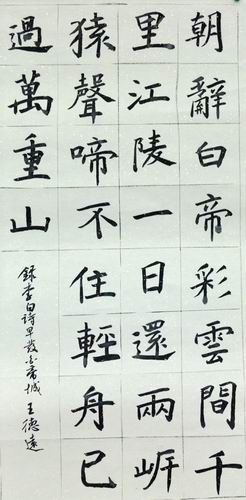 朝辭白帝彩雲間千
里江陵一日還兩岍
猿聲啼不住輕舟已
過萬重山
錄李白詩早發白帝城 王德遠